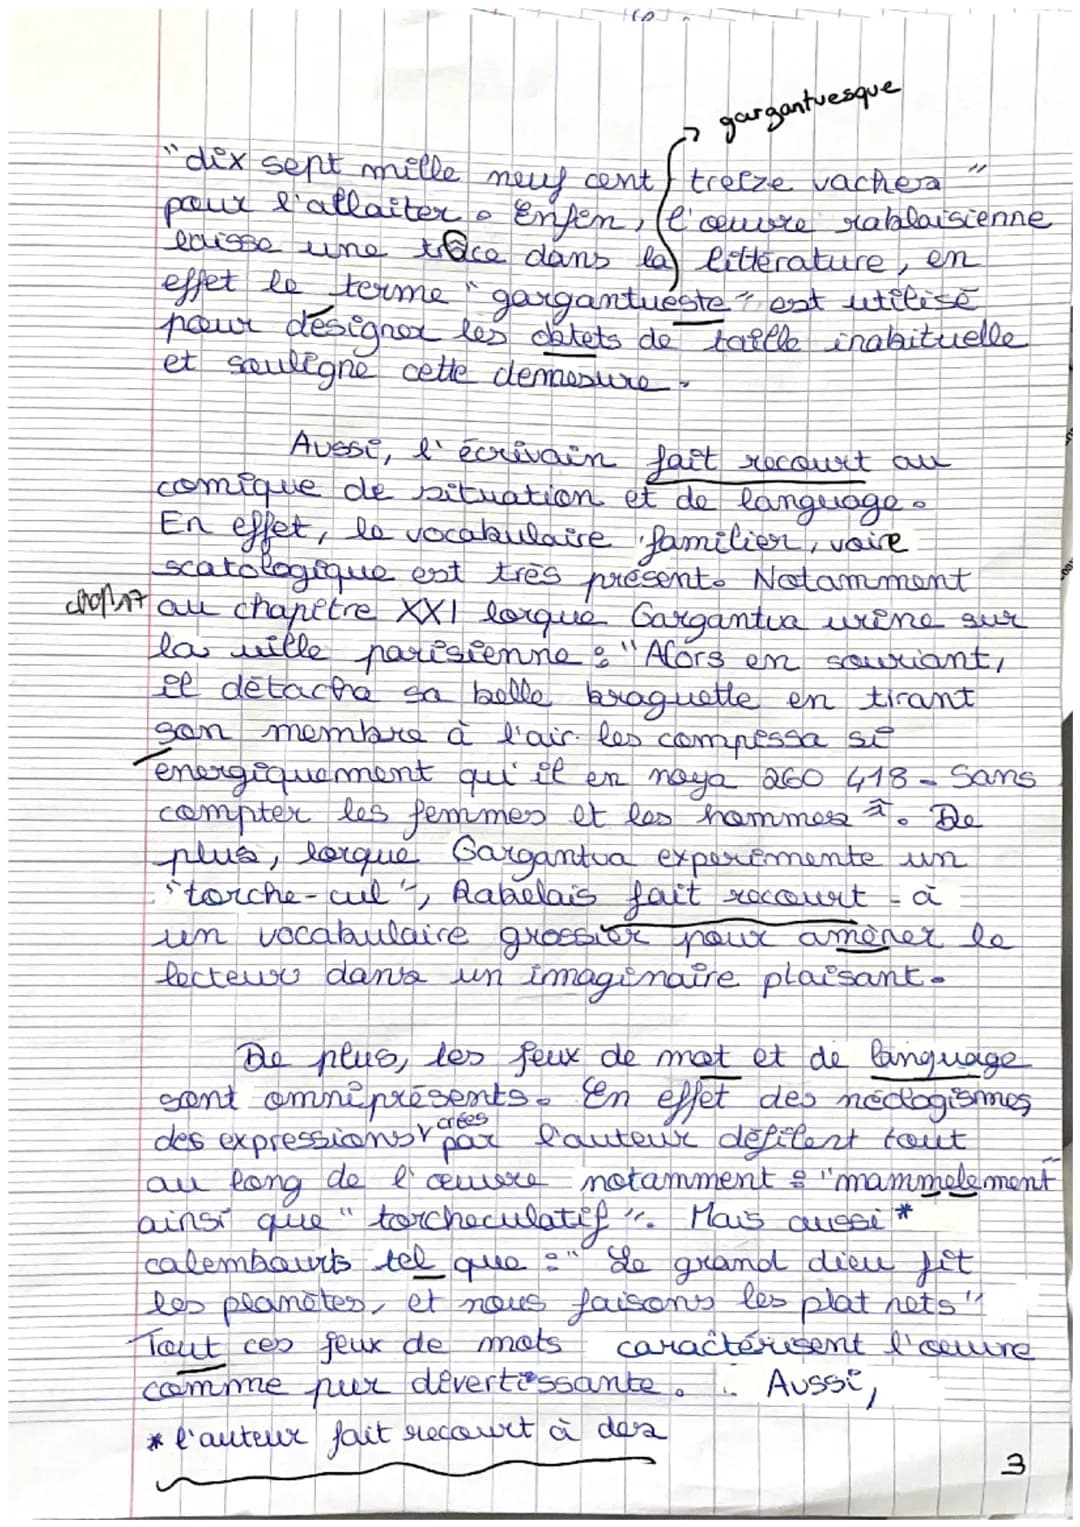 gargantuesque
"dix sept mille neuf cent treize vaches"
pour l'allaiter. Enfin, l'œuvre rablaisienne
laisse une trace dans la littérature, en
effet le terme "gargantueste" est utilisé
pour désigner les obtets de taille inabituelle
et souligne cette demesure.
Aussi, l'écrivain fait recourt au
comique de situation et de language.
En effet, le vocabulaire familier, voire
scatologique est très présent. Notamment
chap 17 au chapitre XXI lorque Gargantua urine sur
la ville parisienne : "Alors en souriant,
il détacha sa belle braguette en tirant
son membre à l'air les compissa si
énergiquement qu'il en noya 260 418 - Sans
compter les femmes et les hommes". De
plus, lorque Gargantua experimente un
"torche-cul", Rabelais fait recourt à
un vocabulaire grossier pour amener le
lecteur dans un imaginaire plaisant.
De plus, les jeux de mot et de language
sont omniprésents. En effet des néologismes
des expressions crées par l'auteur défilent tout
au long de l'œuvre notamment : "mammelement"
ainsi que "torcheculatif". Mais aussi *
calembourts tel que : "Le grand dieu fit
les planètes, et nous faisons les plat nets"
Tout ces jeux de mots caractérisent l'œuvre
comme pur divertissante. Aussi,
* l'auteur fait recourt à des
3